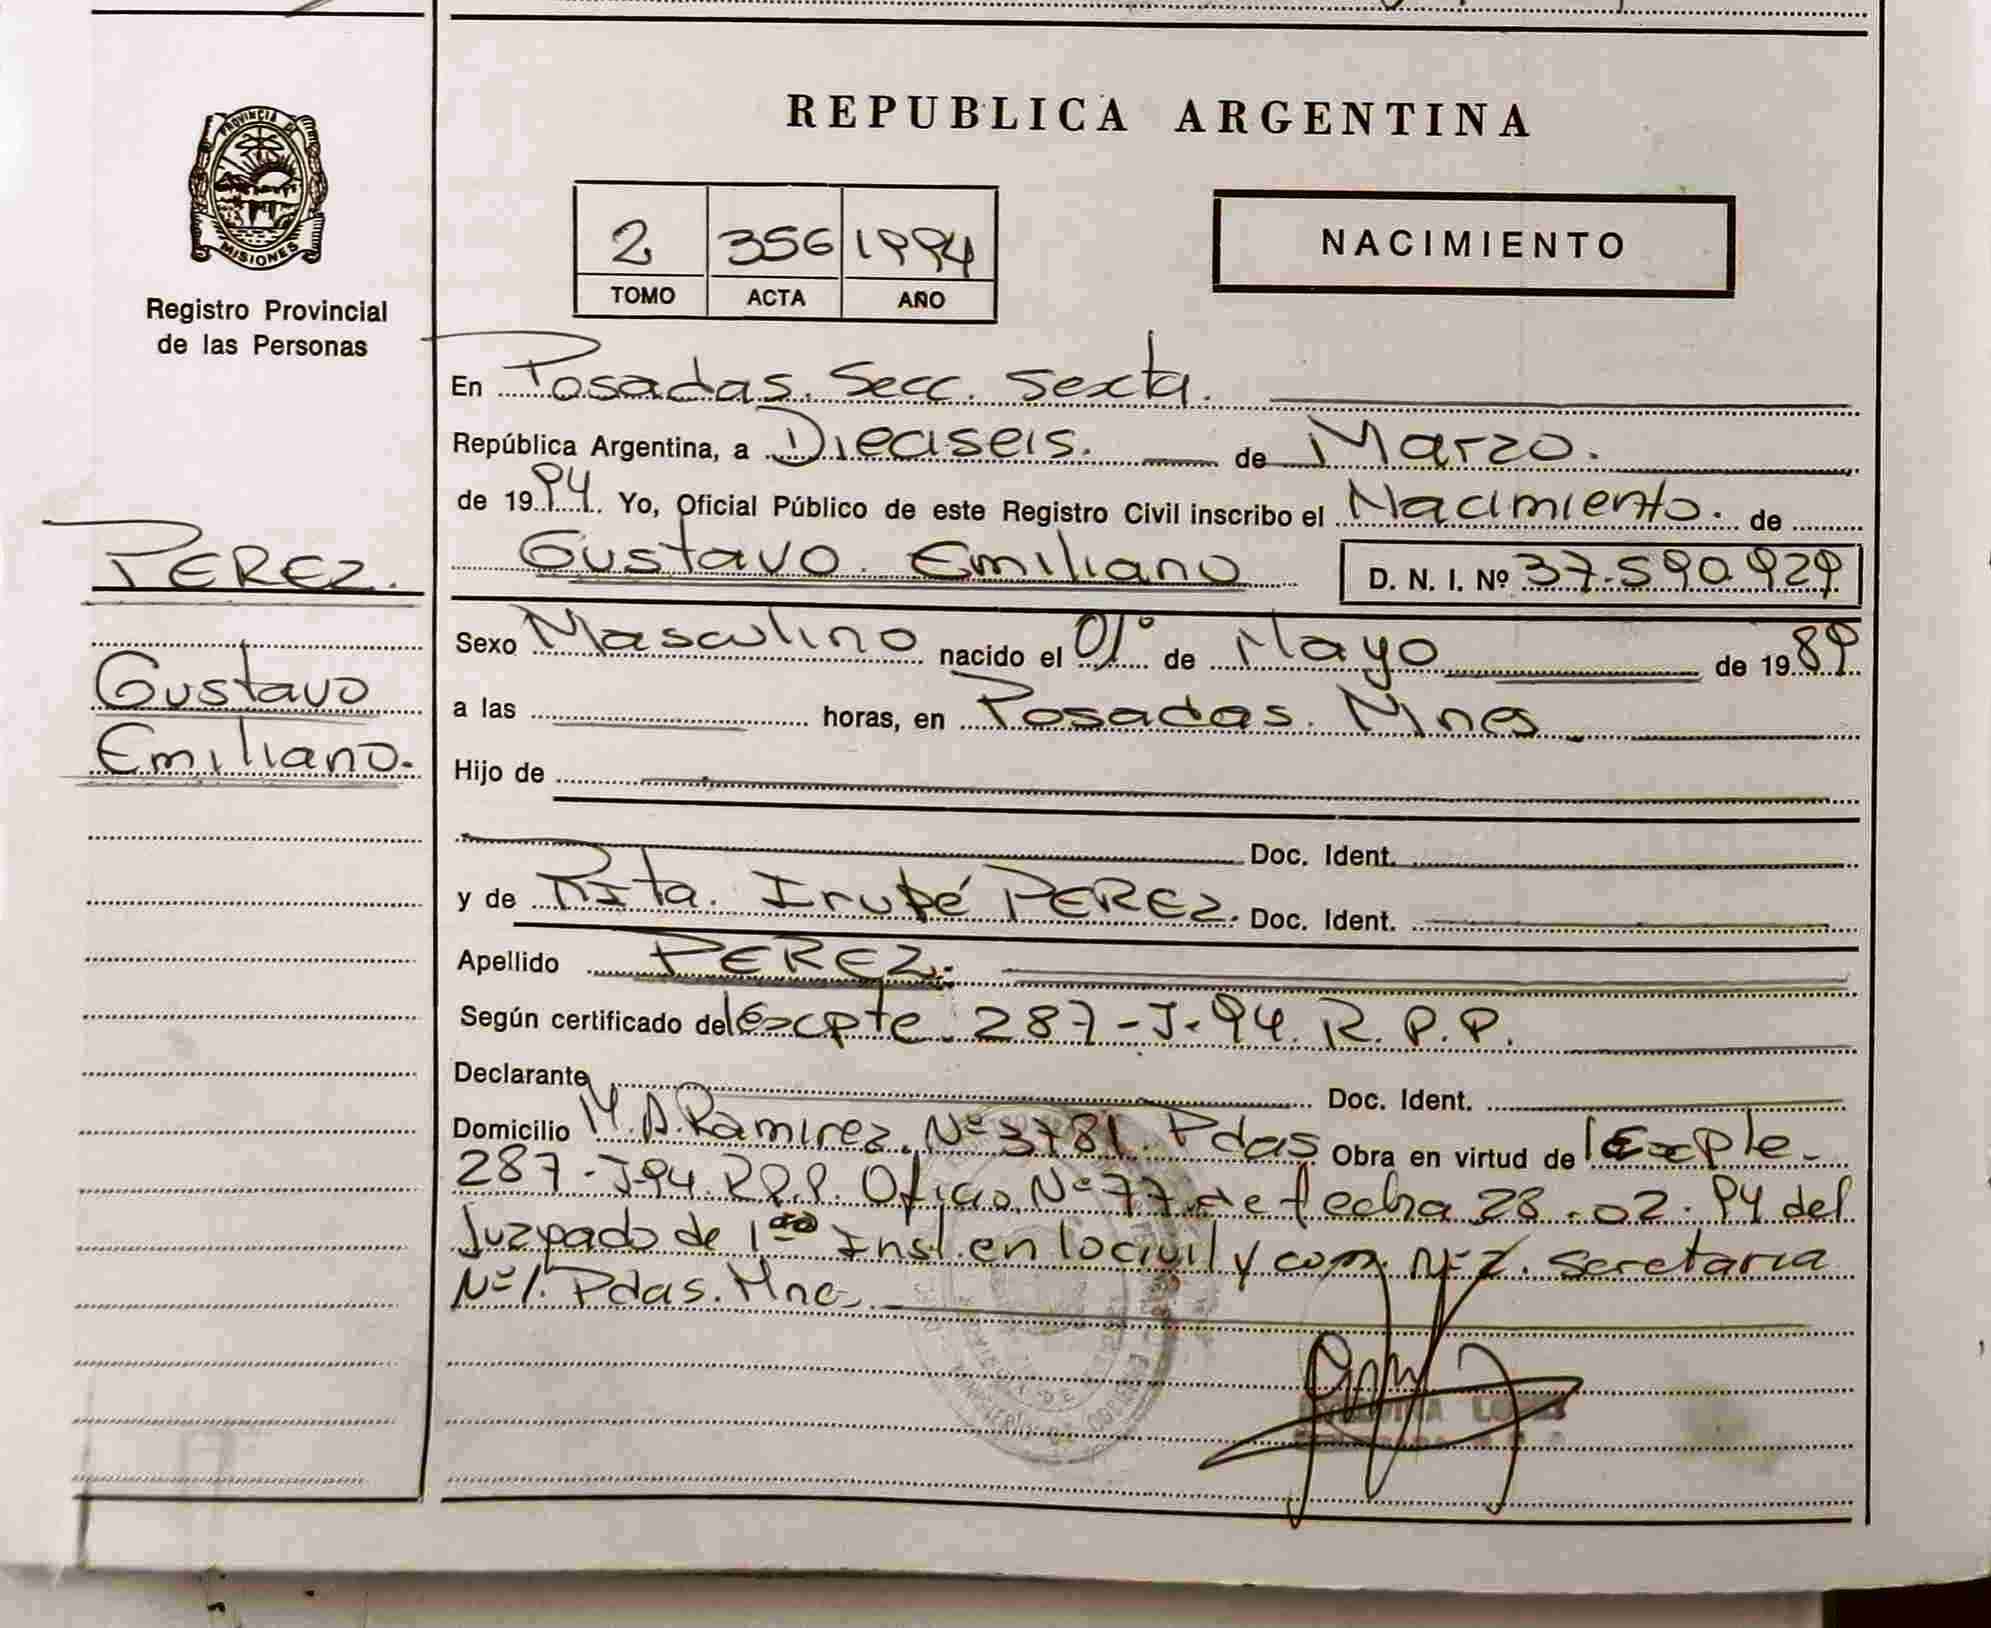 PROVINCIA DE
MISIONES
Registro Provincial
de las Personas
PEREZ.
Gustavo
Emiliano.
REPUBLICA ARGENTINA
2 356 1994
TOMO ACTA AÑO
NACIMIENTO
En Posadas. Secc. Sexta.
República Argentina, a Dieciseis. de Marzo.
de 1994. Yo, Oficial Público de este Registro Civil inscribo el Nacimiento. de
Gustavo Emiliano D. N. I. Nº 37.590.929
Sexo Masculino nacido el 01º de Mayo de 1989
a las horas, en Posadas. Mnes
Hijo de
Doc. Ident.
y de Rita. Irupé PEREZ. Doc. Ident.
Apellido PEREZ.
Según certificado del Excpte. 287-J-94. R.P.P.
Declarante Doc. Ident.
Domicilio M.A. Ramirez. Nº 3781. Pdas Obra en virtud de l Excpte.
287-J-94. R.P.P. Oficio. Nº 77 de fecha 28.02.94 del
Juzgado de 1ra Inst. en lo civil y com. Nº 2. Secretaria
Nº 1. Pdas. Mnes.